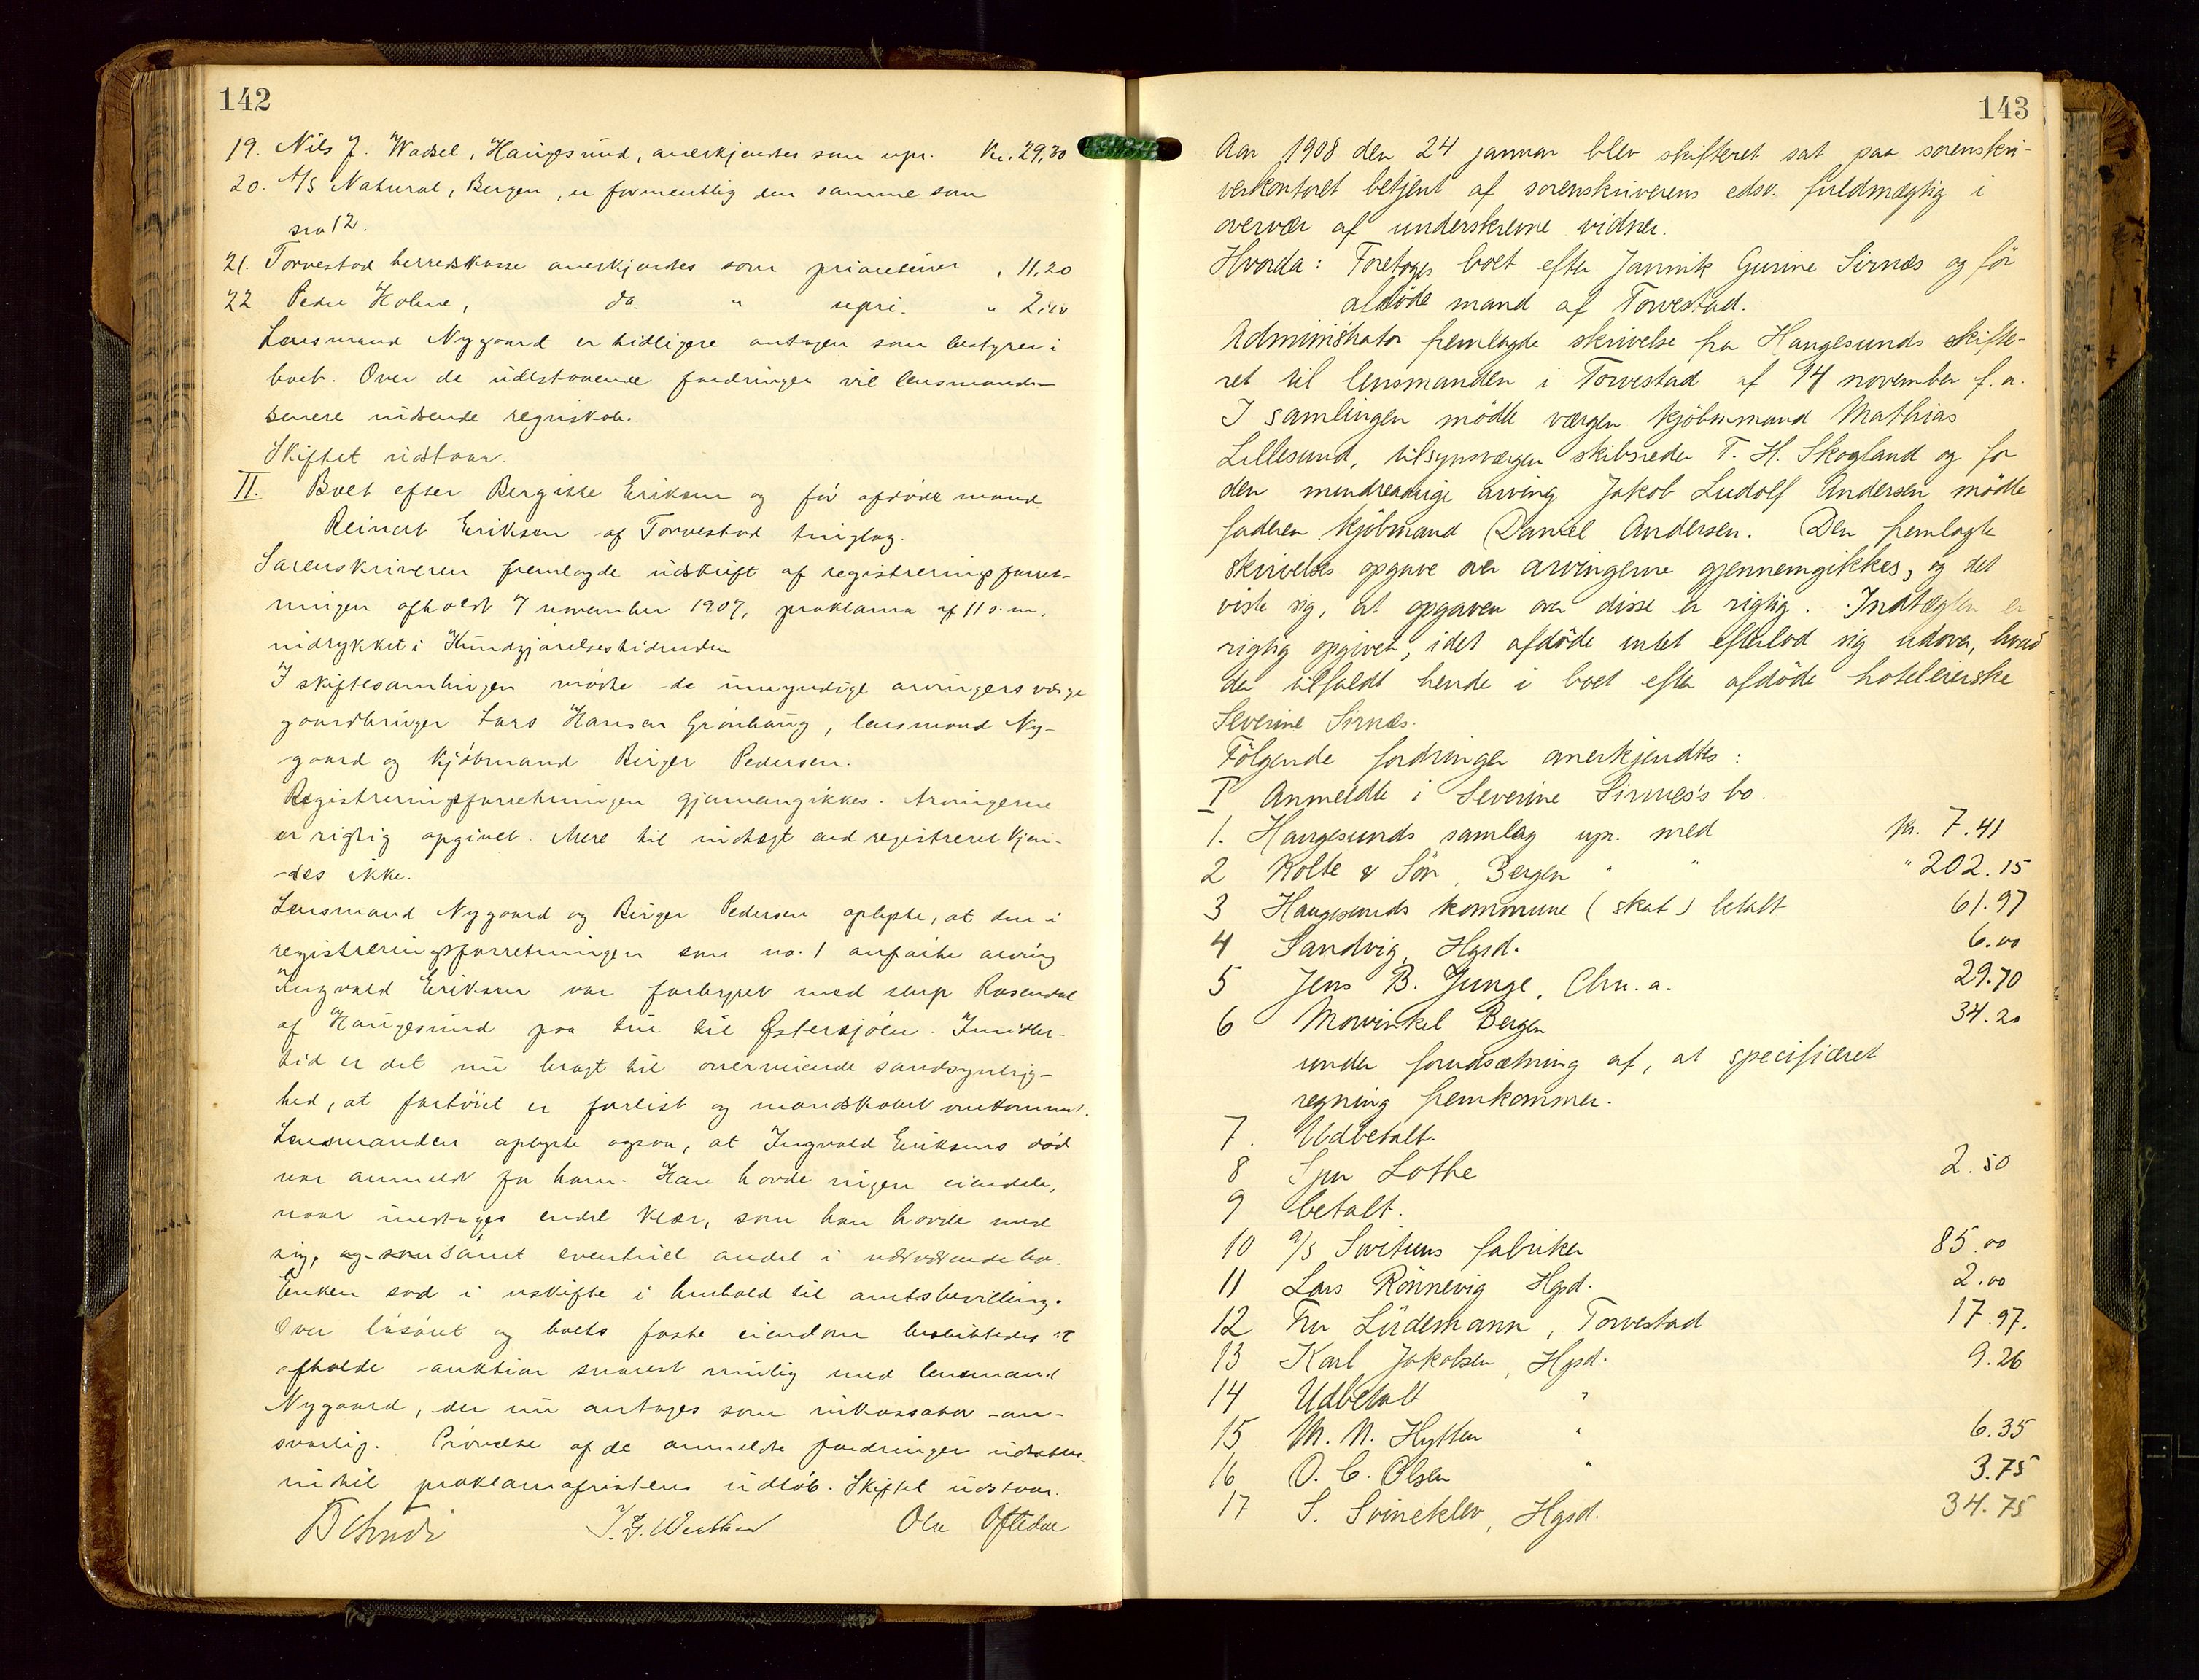 142
19. Nils J. Wadsel, Haugesund, anerkjendtes som upr. Kr. 29,30
20. A/S Natural, Bergen, er formentlig den samme som
no 12.
21. Torvestad herredskasse anerkjendtes som prioriteiret „ 11,20
22 Peder Holme, do. " upri. "
Lensmand Nygaard er tidligere antagen som bestyrer i
boet. Over de udestaaende fordringer vil lensmanden
senere indsende regnskab.
Skiftet udstaar.
II. Boet efter Bergitte Eriksen og før afdøde mand
Reinert Eriksen af Torvestad tinglag.
Sorenskriveren fremlagde udskrift af registreringsforret-
ningen afholdt 7 november 1907, proklama af 11 s.m.
indrykket i Kundgjørelsestidenden
I skiftesamlingen mødte de umyndige arvingers værge
gaardbruger Lars Hansen Grønhaug, lensmand Ny-
gaard og kjøbmand Birger Pedersen.
Registreringsforretningen gjennemgikkes. Arvingerne
er rigtig opgivet. Mere til indtægt end registreret kjen-
des ikke.
Lensmand Nygaard og Birger Pedersen oplyste, at den i
registreringsforretningen som no. 1 anførte arving
Ingvald Eriksen var forhyret med slup Rosendal
af Haugesund paa tur til Østersjøen. Imidler-
tid er det nu bragt til overveiende sandsynlig-
hed, at fartøiet er forlist og mandskabet omkommet.
Lensmanden oplyste ogsaa, at Ingvald Eriksens død
var anmeldt for ham. Han havde ingen eiendele,
naar undtages endel klær, som han havde med
sig, og som samt eventuel andel i nærværende bo.
Enken sad i uskifte i henhold til amtsbevilling.
Over løsøret og boets faste eiendom besluttedes at
afholde auktion snarest mulig med lensmand
Nygaard, der nu antages som inkassator an-
svarlig. Prøvelse af de anmeldte fordringer udsattes
indtil proklamafristens udløb. Skiftet udstaar.
Ole Oftedal
143
Aar 1908 den 24 januar blev skifteret sat paa sorenskri-
verkontoret betjent af sorenskriverens edsv. fuldmægtig i
overvær af underskrevne vidner.
Hvorda: Foretoges boet efter Jannik Gurine Sirnæs og før
afdøde mand af Torvestad.
Administrator fremlagde skrivelse fra Haugesunds skifte-
ret til lensmanden i Torvestad af 14 november f.a.
I samlingen mødte værgen kjøbmand Mathias
Lillesund, tilsynsværgen skibsreder T. H. Skogland og for
den mindreaarige arving Jakob Ludolf Andersen mødte
faderen kjøbmand Daniel Andersen. Den fremlagte
skrivelses opgave over arvingerne gjennemgikkes, og det
viste sig, at opgaven over disse er rigtig. Indtægten er
rigtig opgivet, idet afdøde intet efterlod sig udover, hvad
der tilfaldt hende i boet efter afdøde hoteleierske
Severine Sirnæs.
Følgende fordringer anerkjendtes:
I Anmeldte i Severine Sirnes's bo.
1. Haugesunds samlag upr. med kr. 7.41
2 Kolte & Søn, Bergen " " " 202.15
3 Haugesunds kommune (skat) betalt 61.97
4 Sandvig, Hgsd. 6.00
5 Jens B. Junge, Chr.a. 29.70
6 Mowinkel Bergen 34.20
under forudsætning af, at specificeret
regning fremkommer.
7. Udbetalt.
8 Lothe 2.50
9 betalt.
10 a/s fabriker 85.00
11 Lars Rönnevig Hgsd. 2.00
12 Fru Lüdemann, Torvestad 17.97.
13 Karl Jakobsen, Hgsd. 9.26
14 Udbetalt "
15 M. N. Hytten " 6.35
16 O. C. Olsen " 3.75
17 S. Svineklev, Hgsd. 34.75